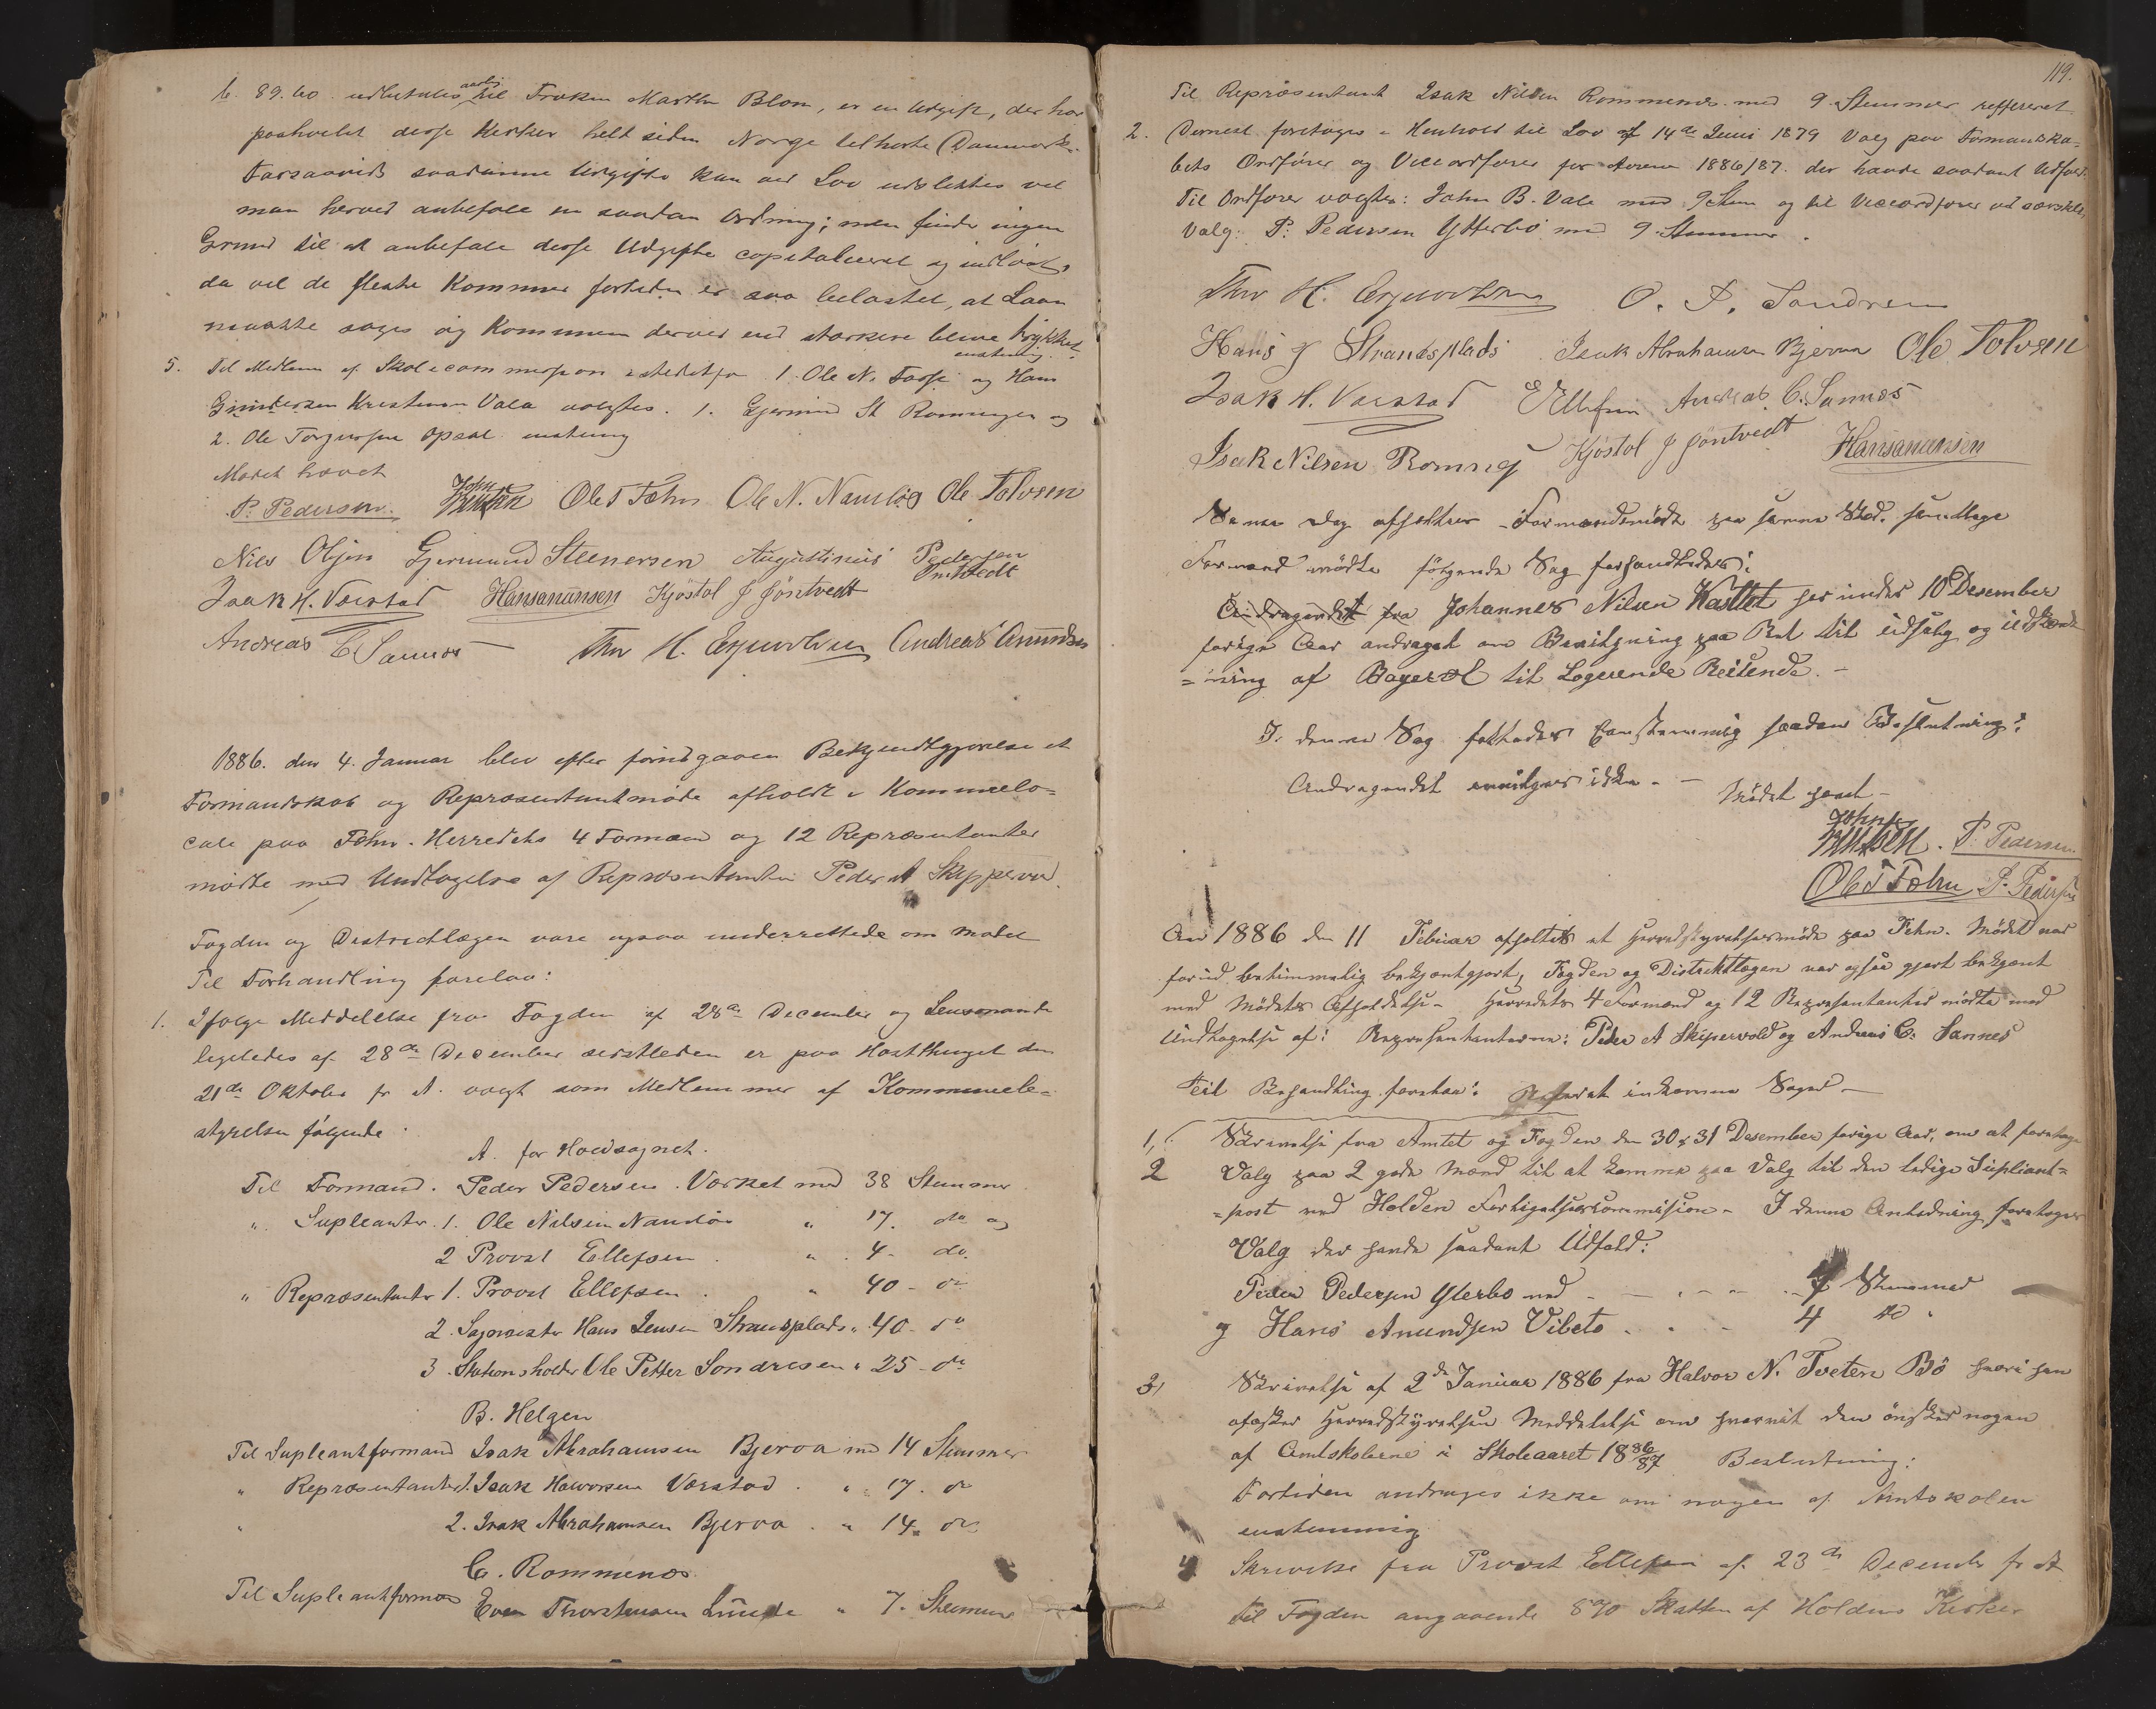 b. 89.60 udbetales aarlig til Frøken Marthe Blom, er en Udgift, der har
paahvilet disse Kirker helt siden Norge tilhørte Danmark.
Forsaavidt saadanne Udgifter kan ved Lov udslettes vil
man herved anbefale en saadan Ordning; men finder ingen
Grund til at anbefale disse Udgifter capitaliseret og indløst,
da vel de fleste Kommuner fortiden er saa belastet, at Laan
maatte søges og Kommunen derved end stærkere blive trykket.
enstemmig.
5. Til Medlem af Skolecommission istedetfor 1. Ole N. Fosse og Hans
Gundersen Kristensen Vala valgtes. 1. Gjermund St Romningen og
2. Ole Torgersen Opsal enstemmig
Mødet hævet
P. Pedersen. John Bentsen Ole T Fæhn Ole N. Namløs Ole Tolvsen
Niels Olsen Gjermund Steenersen Augustinius Pedersen
Isak H. Værstad Hans Amundsen Kjøstol J Jöntvedt
Andreas C Sannes Thor H. Andreas Amundsen
1886. den 4. Januar blev efter forudgaaen Bekjendtgjørelse et
Formandskab og Repræsentantmøde afholdt i Kommunelo-
cale paa Fehn. Herredets 4 Formænd og 12 Repræsentanter
mødte med Undtagelse af Repræsentanten Peder A Skippervold.
Fogden og Districtlægen vare ogsaa underrettede om Mødet
Til Forhandling forelaa:
1. Ifølge Meddelelse fra Fogden af 28de December og Lensmanden
ligeledes af 28de December sidstleden er paa Høstthinget den
21de Oktober f. A. valgt som Medlemmer af Kommunele-
styrelsen følgende.
A. for Hovedsognet.
Til Formand. Peder Pedersen Værket med 38 Stemmer
" Supleanter. 1. Ole Nilsen Namløs " 17. do og
2 Provst Ellefsen " 4 - do.
" Repræsentanter 1. Provst Ellefsen " 40 - do
2. Sagmester Hans Jensen Strandsplads " 40 - do
3. Stationsholder Ole Petter Sondresen " 25 - do
B. Helgen
Til Supleantformand Isak Abrahamsen Bjerva med 14 Stemmer
" Repræsentanter 1. Isak Halvorsen Værstad " 17. do
" 2. Isak Abrahamsen Bjerva " 14. do
C. Rommenæs
Til Supleantformand Even Thorstensen Lunde " 7. Stemmer
119.
Til Repræsentant Isak Nilsen Rommenæs med 9 Stemmer
2. Dernest foretoges i Henhold til Lov af 14de Juni 1879 Valg paa Formandska-
bets Ordfører og Viceordfører for Aarene 1886/87. der havde saadant Udfald.
Til Ordfører valgtes: John B. Vale med 9 Stem og til Viceordfører ved særskilt
Valg: P. Pedersen Ytterbø med 9 Stemmer.
Thor H. O. P. Sondresen
Hans J Strandsplads Isak Abrahamsen Bjerva Ole Tolvsen
Isak H. Værstad Ellefsen Andreas C. Sannes
Isak Nilsen Romnes Kjøstol J Jöntvedt Hans Amundsen
Samme Dag afholtes Formandsmöde paa samme Sted. samtlige
Formænd mödte følgende Sag forhandledes:
Andragendet fra Johannes Nilsen Kastet har under 10 Desember
forige Aar andraget om Bevilgning paa Ret til udsalg og udskjænk
=ning af Bayeröl til Logerende Reisende. -
I denne Sag fattedes Eenstemmig saadan Beslutning:
Andragendet innvilges ikke. - Mödet hævet -
John Bentsen. P. Pedersen
Ole T Fæhn P. Pedersen
Aar 1886 den 11 Febuar afholtes et Herredstyrelsesmöde paa Fehn. Mödet var
forud betimmelig bekjentgjort, Fogden og Distriktlægen var også gjort bekjent
med Mödets Afholdelse - Herredets 4 Formænd og 12 Representanter mödte med
Undtagelse af: Representanterne: Peder A Skipervold og Andreas C. Sannes
Til Behandling forelaa: inkomne Sager -
1, Skrivelse fra Amtet og Fogden den 30 & 31 Desember forige Aar, om at foretage
2 Valg paa 2 gode Mænd til at komme paa Valg til den ledige Supliant=
=post ved Holden Forligelsescommission - I denne Anledning foretoges
Valg der havde saadant Udfald:
Peder Pedersen Yterbo med - - - - 7 Stemmer
og Hans Amundsen Vibeto . . - 4 do "
3, Skrivelse af 2de Januar 1886 fra Halvor N. Tveten Bö hvori han
afæsker Herredstyrelsen Meddelelse om hvorvit den önsker nogen
af Amtskolerne i Skoleaaret 1886/87 Beslutning:
Fortiden andrages ikke om nogen af Amtskolen
enstemmig
4 Skrivelse fra Provst Ellefsen af 23de December f. A
til Fogden angaaende Skatten af Holdens Kirker